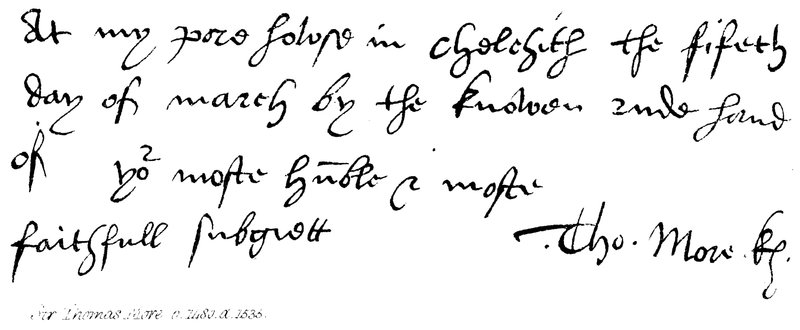 At my pore howse in Chelchith the fifeth
day of march by the knowen rude hand
of yor moste hūble & moste
faithfull subgiett
Tho. More. kt.
Sir Thomas More b. 1480. d. 1535.